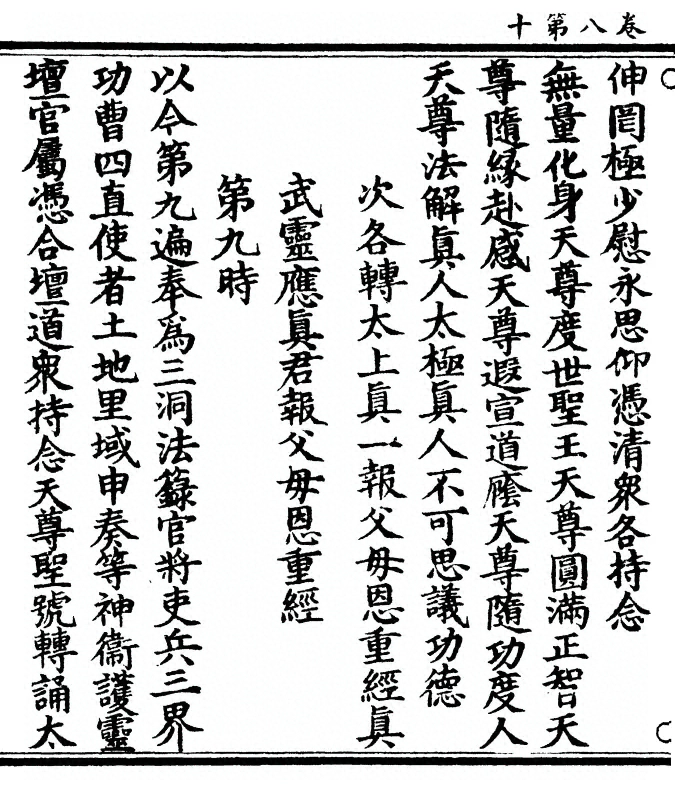 十第八卷
伸罔極少慰永思仰憑清衆各持念
無量化身天尊度世聖王天尊圓滿正智天
尊隨緣赴感天尊遐宣道廕天尊隨功度人
天尊法解眞人太極眞人不可思議功德
次各轉太上眞一報父母恩重經眞
武靈應眞君報父母恩重經
第九時
以今第九遍奉爲三洞法籙官將吏兵三界
功曹四直使者土地里域申奏等神衞護靈
壇官屬憑合壇道衆持念天尊聖號轉誦太